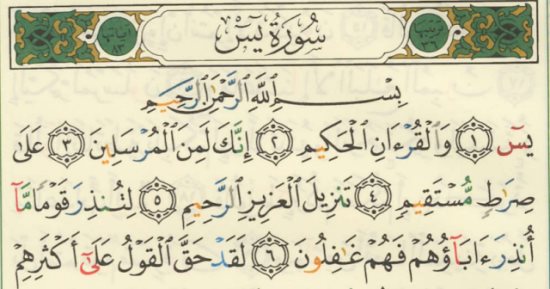 ترتيبها ٣٦ سُورَةُ يسٓ آياتها ٨٣
بِسْمِ ٱللَّهِ ٱلرَّحْمَٰنِ ٱلرَّحِيمِ
يسٓ ١ وَٱلْقُرْءَانِ ٱلْحَكِيمِ ٢ إِنَّكَ لَمِنَ ٱلْمُرْسَلِينَ ٣ عَلَىٰ
صِرَٰطٍ مُّسْتَقِيمٍ ٤ تَنزِيلَ ٱلْعَزِيزِ ٱلرَّحِيمِ ٥ لِتُنذِرَ قَوْمًا مَّآ
أُنذِرَ ءَابَآؤُهُمْ فَهُمْ غَٰفِلُونَ ٦ لَقَدْ حَقَّ ٱلْقَوْلُ عَلَىٰٓ أَكْثَرِهِمْ